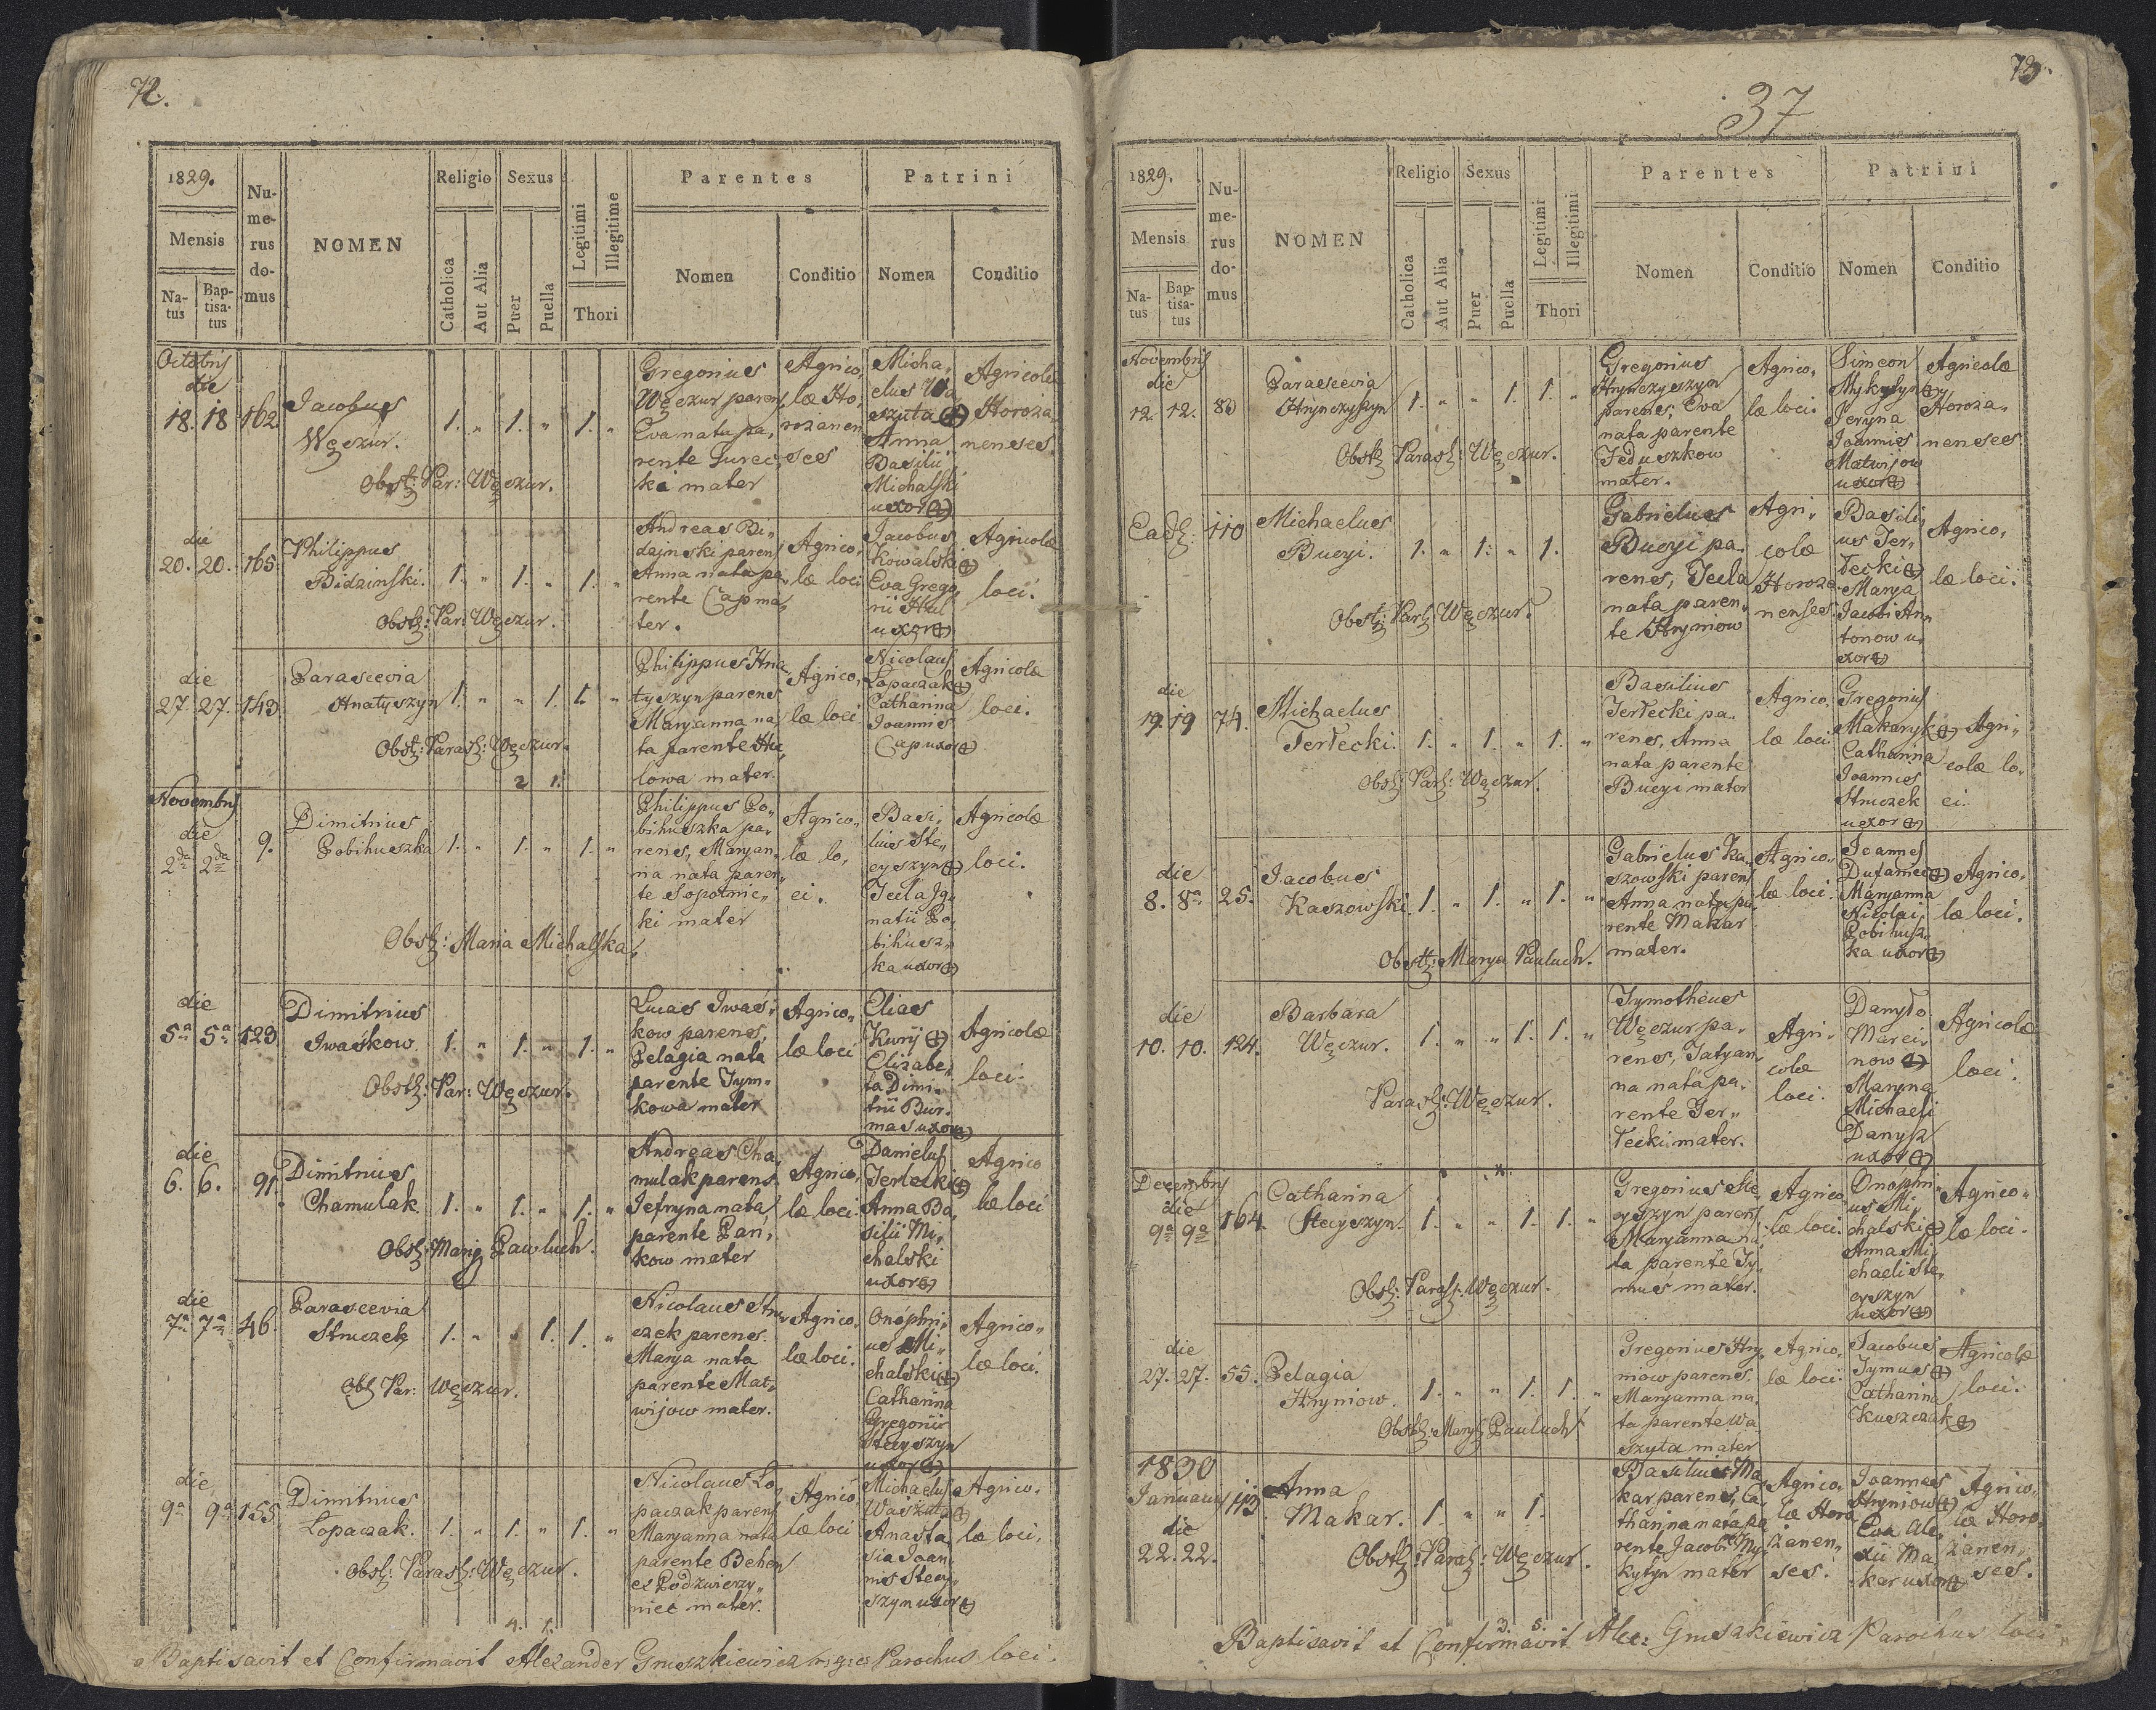 72.
1829.
Mensis
Na-
tus
Bap-
tisa-
tus
Nu-
me-
rus
do-
mus
NOMEN
Religio
Catholica
Aut Alia
Sexus
Puer
Puella
Legitimi
Illegitime
Thori
Parentes
Nomen
Conditio
Patrini
Nomen
Conditio
Octobris
die
18. 18 162.
Jacobus
Węczur.
1. „ 1. „ 1. „
Obst: Par: Węczur.
Gregorius
Węczur parens
Eva nata pa„
rente Jurec„
ka mater
Agrico„
læ Ho„
rozanen
ses
Micha„
elus Wa
szuta (+)
Anna
Basilii
Michalski
uxor (+)
Agricolæ
Horoża„
nenses.
die
20. 20. 165.
Philippus
Bidzinski.
1. „ 1. „ 1. „
Obst: Par: Węczur.
Andreas Bi„
dzinski parens
Anna nata pa„
rente Cap ma„
ter.
Agrico„
læ loci
Jacobus
Kowalski (+)
Eva Grego„
rii Hul
uxor (+)
Agricolæ
loci.
die
27. 27. 143.
Parascevia
Hnatyszyn
1. „ „ 1. 1. „
Obst: Paras: Węczur.
2 1.
Philippus Hna„
tyszyn parens
Maryanna na„
ta parente Hu„
lowa mater.
Agrico„
læ loci.
Nicolaus
Łopaczak (+)
Catharina
Joannis
Cap uxor (+)
Agricolæ
loci.
Novembris
die
2da 2da 9.
Dimitrius
Pobihuszka
1. „ 1. „ 1. „
Obst: Maria Michalska.
Philippus Po„
bihuszka pa„
rens, Maryan„
na nata paren„
te Sopotnic„
ki mater
Agrico„
læ lo„
ci.
Basi„
lius Ste„
cyszyn (+)
Tecla Ig„
natii Po„
bihusz„
ka uxor (+)
Agricolæ
loci.
die
5a 5a 123
Dimitrius
Iwaśkow.
1. „ 1. „ 1. „
Obst: Par: Węczur.
Lucas Iwaś„
kow parens,
Pelagia nata
parente Tym„
kowa mater
Agrico„
læ loci
Elias
Kuryj (+)
Elizabe„
ta Dimi„
trii Bur„
mas uxor (+)
Agricolæ
loci.
die
6. 6. 91.
Dimitrius
Chamulak
1. „ 1. „ 1. „
Obst: Mary Pawluch.
Andreas Cha„
mulak parens
Jefryna nata
parente Pań„
kow mater
Agrico„
læ loci.
Danielus
Terlecki (+)
Anna Ba„
silii Mi„
chalski
uxor (+)
Agrico
læ loci
die
7a 7a 46.
Parascevia
Struczek
1. „ „ 1. 1. „
Obst Par: Węczur.
Nicolaus Stru„
czek parens.
Marya nata
parente Mat„
wijow mater.
Agrico„
læ loci.
Onophri„
us Mi„
chalski (+)
Catharina
Gregorii
Stecyszyn
uxor (+)
Agrico„
læ loci.
die
9a 9a 155
Dimitrius
Łopaczak.
1. „ 1. „ 1. „
Obst: Paras: Węczur.
4. 1.
Nicolaus Ło„
paczak parens
Maryanna nata
parente Behen
et Podzwierzy„
niec mater.
Agrico„
læ loci
Michaelus
Waszuta (+)
Anasta„
sia Joan„
nis Stecy„
szyn uxor (+)
Agrico„
læ loci.
Baptisavit et Confirmavit Alexander Gruszkiewicz Parochus loci.
73.
37
1829.
Mensis
Na-
tus
Bap-
tisa-
tus
Nu-
me-
rus
do-
mus
NOMEN
Religio
Catholica
Aut Alia
Sexus
Puer
Puella
Legitimi
Illegitimi
Thori
Parentes
Nomen
Conditio
Patrini
Nomen
Conditio
Novembris
die
12. 12. 83
Parascevia
Hrynczyszyn
1. „ „ 1. 1. „
Obst Paras: Węczur.
Gregorius
Hrynczyszyn
parens, Eva
nata parente
Feduszkow
mater.
Agrico„
læ loci.
Simeon
Mykytyn (+)
Jeryna
Joannis
Matwijow
uxor (+)
Agricolæ
Horoża„
nenses
Ead: 110
Michaelus
Bucyi.
1. „ 1. „ 1.
Obst: Par: Węczur.
Gabrielus
Bucyi pa„
rens, Tecla
nata paren„
te Hryniow
Agri„
colæ
Horoża
nenses.
Basili„
us Ter„
lecki (+)
Marya
Jacobi An„
tonow u„
xor (+)
Agrico„
læ loci.
die
19. 19 74.
Michaelus
Terlecki.
1. „ 1. „ 1. „
Obst: Par: Węczur.
Basilius
Terlecki pa„
rens, Anna
nata parente
Bucyi mater
Agrico„
læ loci
Gregorius
Makaryk (+)
Catharina
Joannis
Struczek
uxor (+)
Agri„
colæ lo„
ci.
die
8. 8a 25.
Jacobus
Kaszowski.
1. „ 1. „ 1. „
Obst: Marya Pauluch.
Gabrielus Ka„
szowski parens
Anna nata pa„
rente Makar
mater.
Agrico„
læ loci.
Joannes
Dufanec (+)
Maryanna
Nicolai
Pobihusz„
ka uxor (+)
Agrico„
læ loci.
die
10. 10. 124.
Barbara
Węczur.
1. „ „ 1. 1. „
Paras: Węczur.
Tymotheus
Węczur pa„
rens, Tatyan„
na nata pa„
rente Ter„
lecki mater.
Agri„
colæ
loci.
Danyło
Marci„
now (+)
Maryna
Michaeli
Danysz
uxor (+)
Agricolæ
loci.
Decembris
die
9a 9a 164.
Catharina
Stecyszyn.
1. „ „ 1. 1. „
Obst: Paras: Węczur.
Gregorius Ste„
cyszyn parens
Maryanna na„
ta parente Ty„
mus mater.
Agrico
læ loci.
Onophri„
us Mi„
chalski (+)
Anna Mi„
chaeli Ste„
cyszyn
uxor (+)
Agrico„
læ loci.
die
27. 27. 55.
Pelagia
Hryniow.
1. „ „ 1. 1. „
Obst: Mary Pauluch
Gregorius Hry„
niow parens.
Maryanna na„
ta parente Wa„
szyta mater
Agrico„
læ loci.
Jacobus
Tymus (+)
Catharina
Kuszczak (+)
Agricolæ
loci.
1830
Januarii
die
22. 22. 113.
Anna
Makar.
1. „ „ 1.
Obst: Paras: Węczur.
3. 5.
Basilius Ma„
kar parens, Ca„
tharina nata pa
rente Jacobi My„
kytyn mater
Agrico„
læ Horo
żanen„
ses.
Joannes
Hryniow (+)
Eva Ale„
xii Ma„
kar uxor (+)
Agrico„
læ Horo„
żanen„
ses.
Baptisavit et Confirmavit Alex: Gruszkiewicz Parochus loci